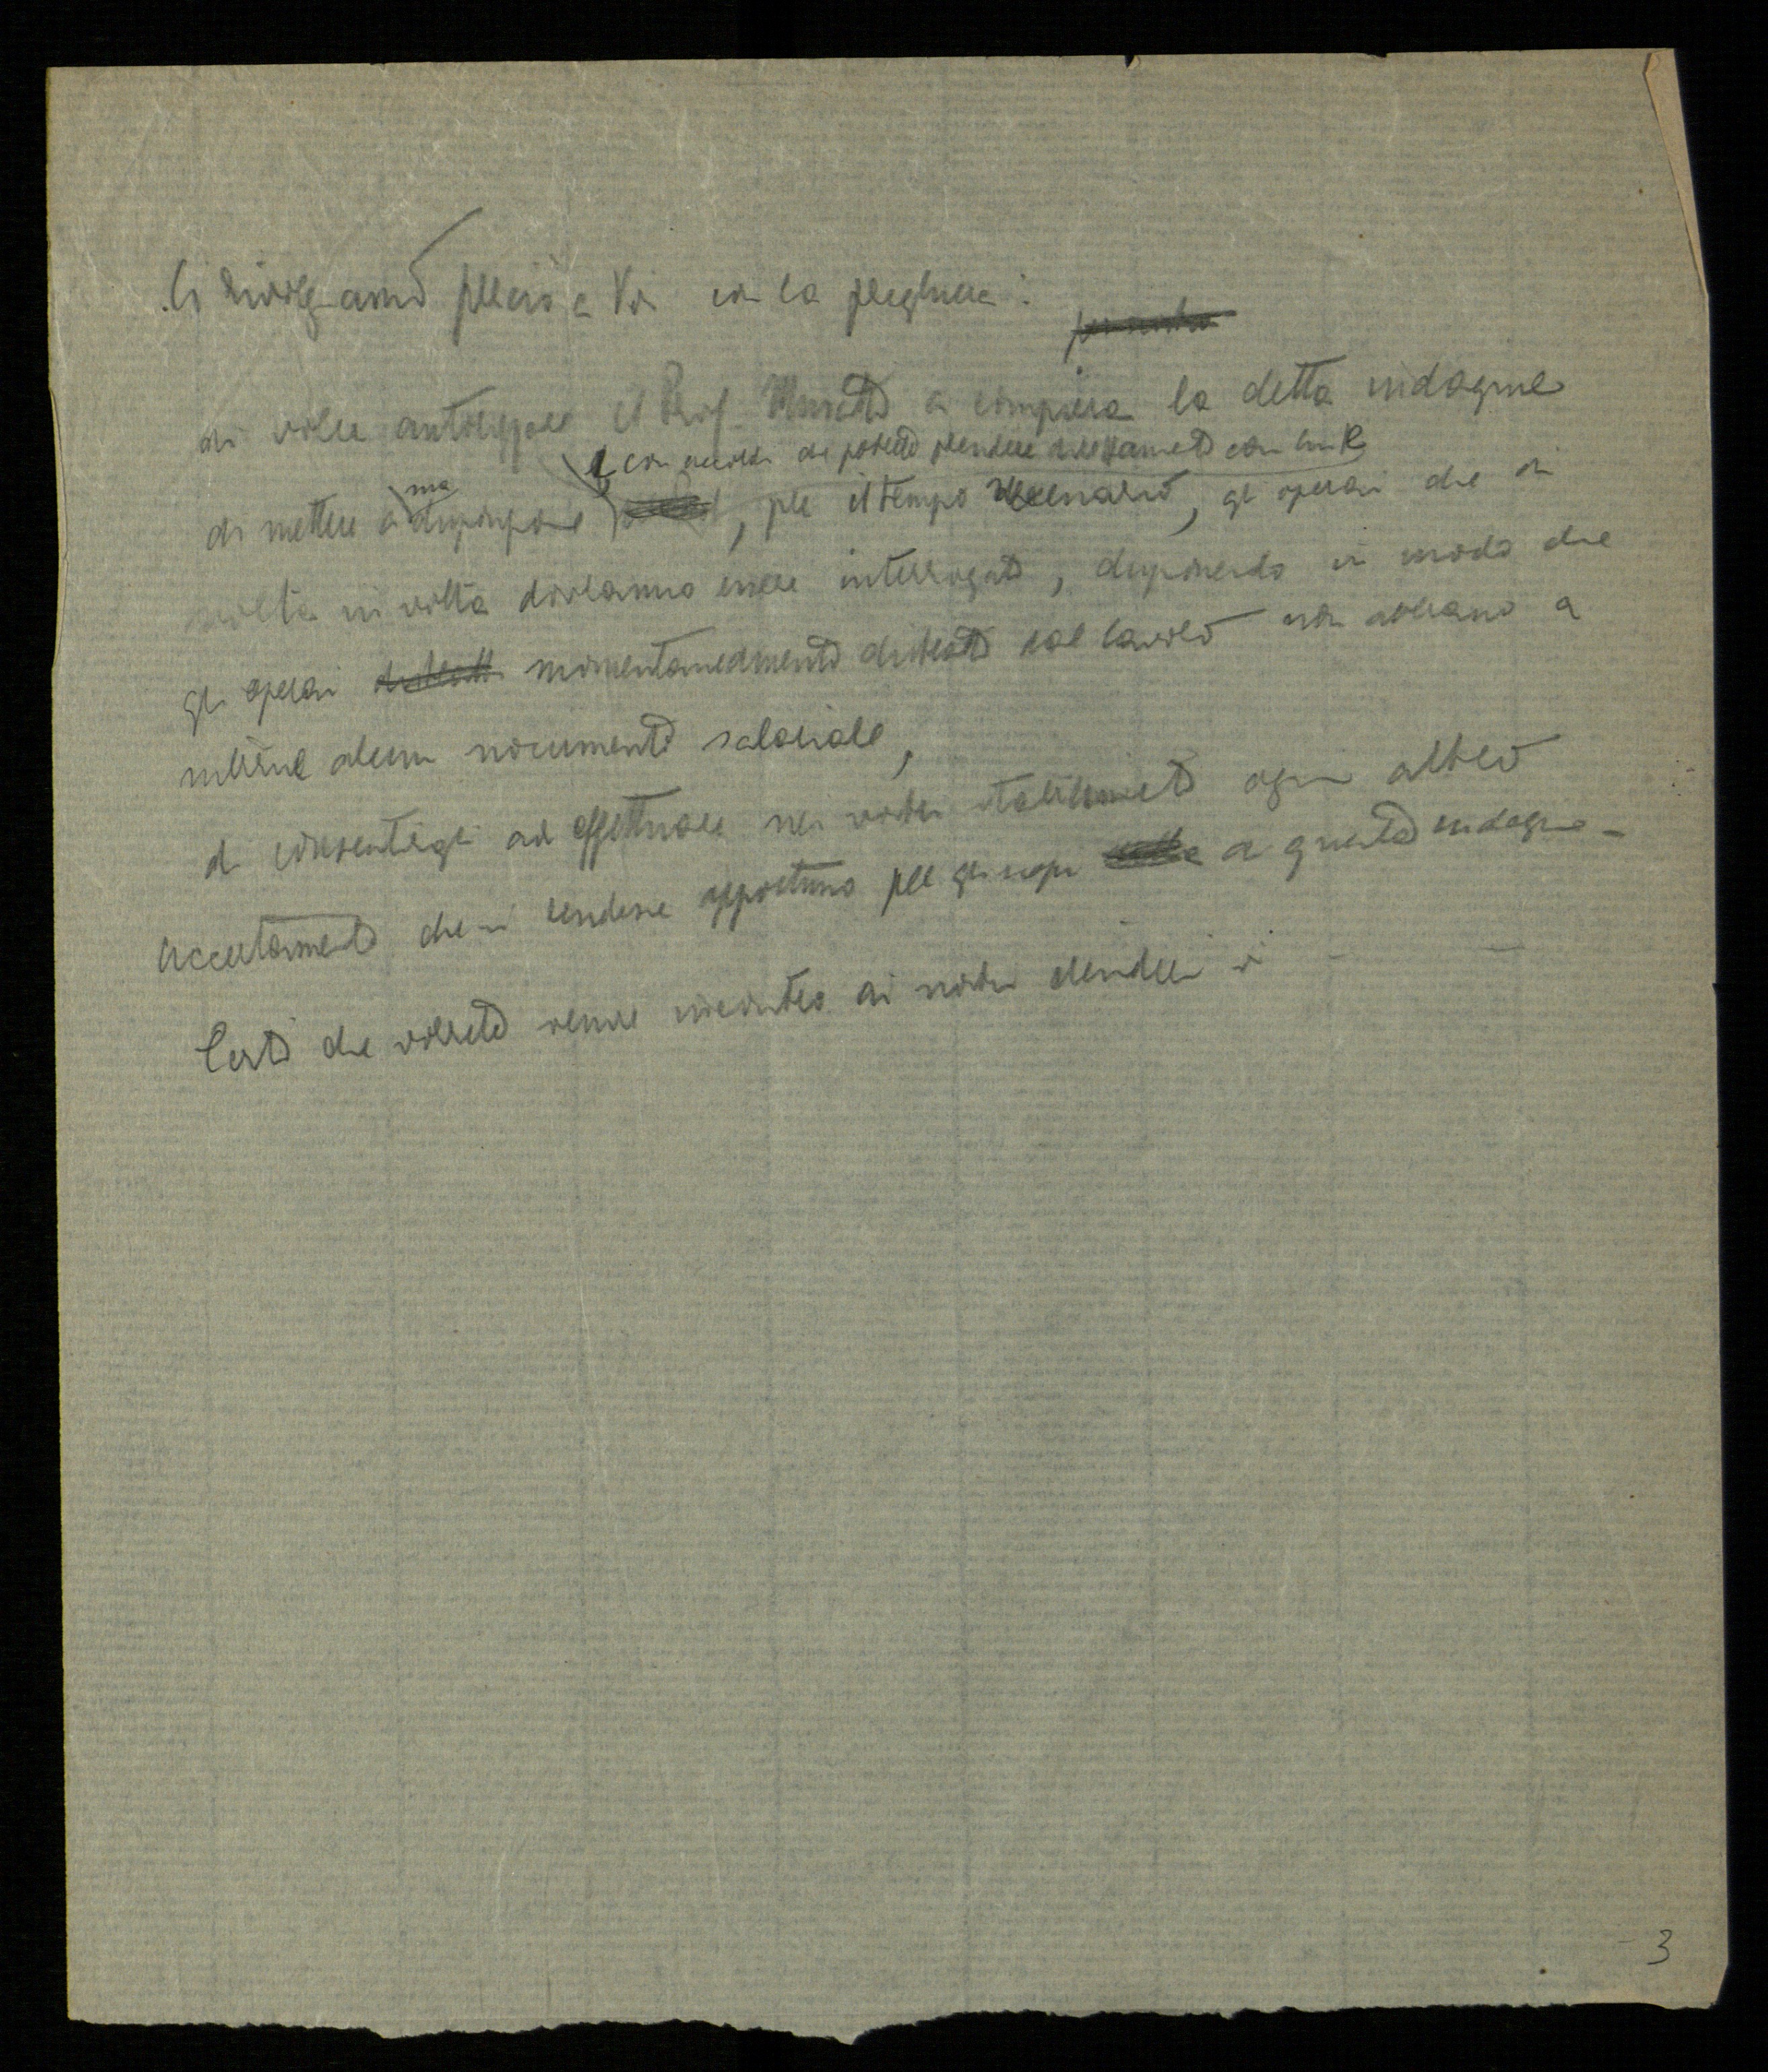 Ci rivolgiamo perciò a Voi con la preghiera:
di voler autorizzare il Prof. Musatti a compiere la detta indagine
e con accordi che potrete prendere direttamente con lui
di mettere a sua disposizione, per il tempo necessario, gli operai che di
volta in volta dovranno essere interrogati, disponendo in modo che
gli operai momentaneamente distratti dal lavoro non abbiano a
subirne alcun nocumento salariale,
di consentirgli ad effettuare nei vostri stabilimenti ogni altro
accertamento che si rendesse opportuno per gli scopi di questa indagine -
Certi che vorrete venire incontro ai nostri desideri vi
3